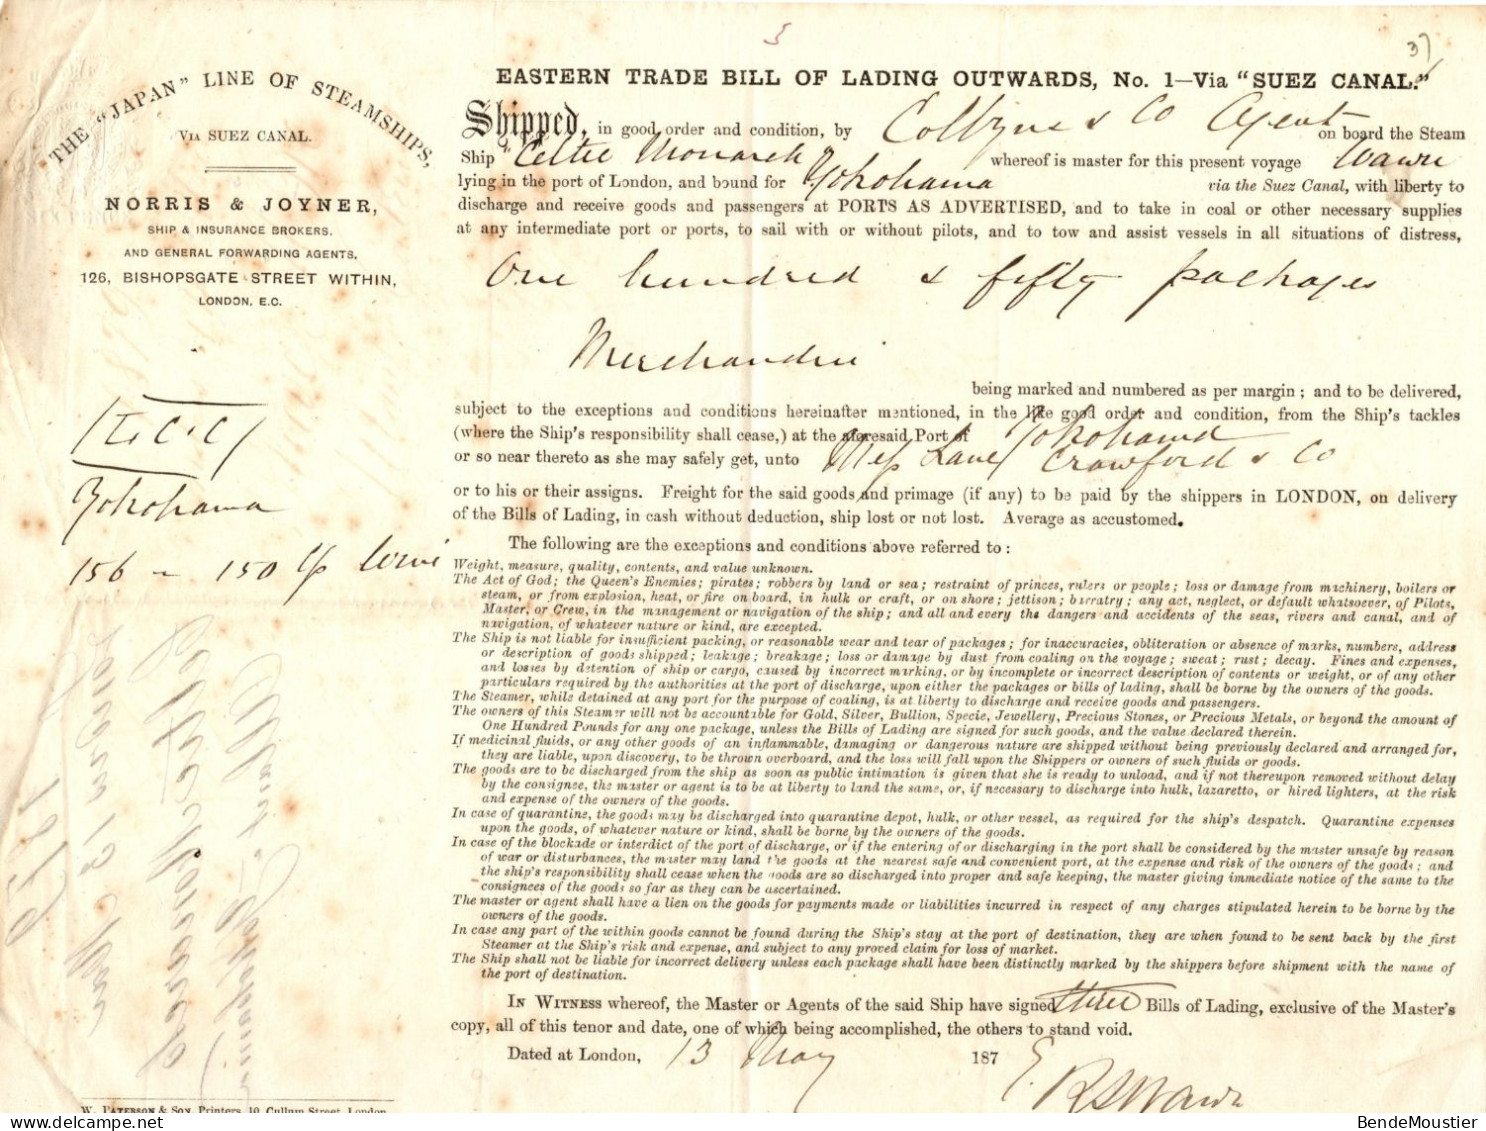 3
37
THE "JAPAN" LINE OF STEAMSHIPS,
VIA SUEZ CANAL.
NORRIS & JOYNER,
SHIP & INSURANCE BROKERS,
AND GENERAL FORWARDING AGENTS,
126, BISHOPSGATE STREET WITHIN,
LONDON, E.C.
Yokohama
156 – 150
EASTERN TRADE BILL OF LADING OUTWARDS, No. 1—Via "SUEZ CANAL."
Shipped, in good order and condition, by & Co Agent on board the Steam
Ship "Celtic Monarch whereof is master for this present voyage Wawn
lying in the port of London, and bound for Yokohama via the Suez Canal, with liberty to
discharge and receive goods and passengers at PORTS AS ADVERTISED, and to take in coal or other necessary supplies
at any intermediate port or ports, to sail with or without pilots, and to tow and assist vessels in all situations of distress,
One hundred & fifty packages
Merchandise
being marked and numbered as per margin; and to be delivered,
subject to the exceptions and conditions hereinafter mentioned, in the like good order and condition, from the Ship's tackles
(where the Ship's responsibility shall cease,) at the aforesaid Port of Yokohama
or so near thereto as she may safely get, unto Mess Lane Crawford & Co
or to his or their assigns. Freight for the said goods and primage (if any) to be paid by the shippers in LONDON, on delivery
of the Bills of Lading, in cash without deduction, ship lost or not lost. Average as accustomed.
The following are the exceptions and conditions above referred to:
Weight, measure, quality, contents, and value unknown.
The Act of God; the Queen's Enemies; pirates; robbers by land or sea; restraint of princes, rulers or people; loss or damage from machinery, boilers or
steam, or from explosion, heat, or fire on board, in hulk or craft, or on shore; jettison; barratry; any act, neglect, or default whatsoever, of Pilots,
Master, or Crew, in the management or navigation of the ship; and all and every the dangers and accidents of the seas, rivers and canal, and of
navigation, of whatever nature or kind, are excepted.
The Ship is not liable for insufficient packing, or reasonable wear and tear of packages; for inaccuracies, obliteration or absence of marks, numbers, address
or description of goods shipped; leakage; breakage; loss or damage by dust from coaling on the voyage; sweat; rust; decay. Fines and expenses,
and losses by detention of ship or cargo, caused by incorrect marking, or by incomplete or incorrect description of contents or weight, or of any other
particulars required by the authorities at the port of discharge, upon either the packages or bills of lading, shall be borne by the owners of the goods.
The Steamer, while detained at any port for the purpose of coaling, is at liberty to discharge and receive goods and passengers.
The owners of this Steamer will not be accountable for Gold, Silver, Bullion, Specie, Jewellery, Precious Stones, or Precious Metals, or beyond the amount of
One Hundred Pounds for any one package, unless the Bills of Lading are signed for such goods, and the value declared therein.
If medicinal fluids, or any other goods of an inflammable, damaging or dangerous nature are shipped without being previously declared and arranged for,
they are liable, upon discovery, to be thrown overboard, and the loss will fall upon the Shippers or owners of such fluids or goods.
The goods are to be discharged from the ship as soon as public intimation is given that she is ready to unload, and if not thereupon removed without delay
by the consignee, the master or agent is to be at liberty to land the same, or, if necessary to discharge into hulk, lazaretto, or hired lighters, at the risk
and expense of the owners of the goods.
In case of quarantine, the goods may be discharged into quarantine depot, hulk, or other vessel, as required for the ship's despatch. Quarantine expenses
upon the goods, of whatever nature or kind, shall be borne by the owners of the goods.
In case of the blockade or interdict of the port of discharge, or if the entering of or discharging in the port shall be considered by the master unsafe by reason
of war or disturbances, the master may land the goods at the nearest safe and convenient port, at the expense and risk of the owners of the goods; and
the ship's responsibility shall cease when the goods are so discharged into proper and safe keeping, the master giving immediate notice of the same to the
consignees of the goods so far as they can be ascertained.
The master or agent shall have a lien on the goods for payments made or liabilities incurred in respect of any charges stipulated herein to be borne by the
owners of the goods.
In case any part of the within goods cannot be found during the Ship's stay at the port of destination, they are when found to be sent back by the first
Steamer at the Ship's risk and expense, and subject to any proved claim for loss of market.
The Ship shall not be liable for incorrect delivery unless each package shall have been distinctly marked by the shippers before shipment with the name of
the port of destination.
IN WITNESS whereof, the Master or Agents of the said Ship have signed three Bills of Lading, exclusive of the Master's
copy, all of this tenor and date, one of which being accomplished, the others to stand void.
Dated at London, 13 May 187
W. PATERSON & SON, Printers, 19, Cullum Street, London
delcampe.net
BendeMoustier